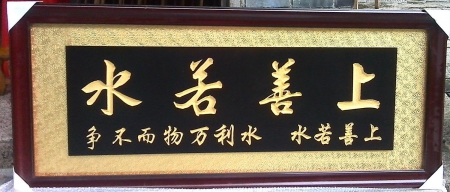 上善若水
上善若水 水利万物而不争